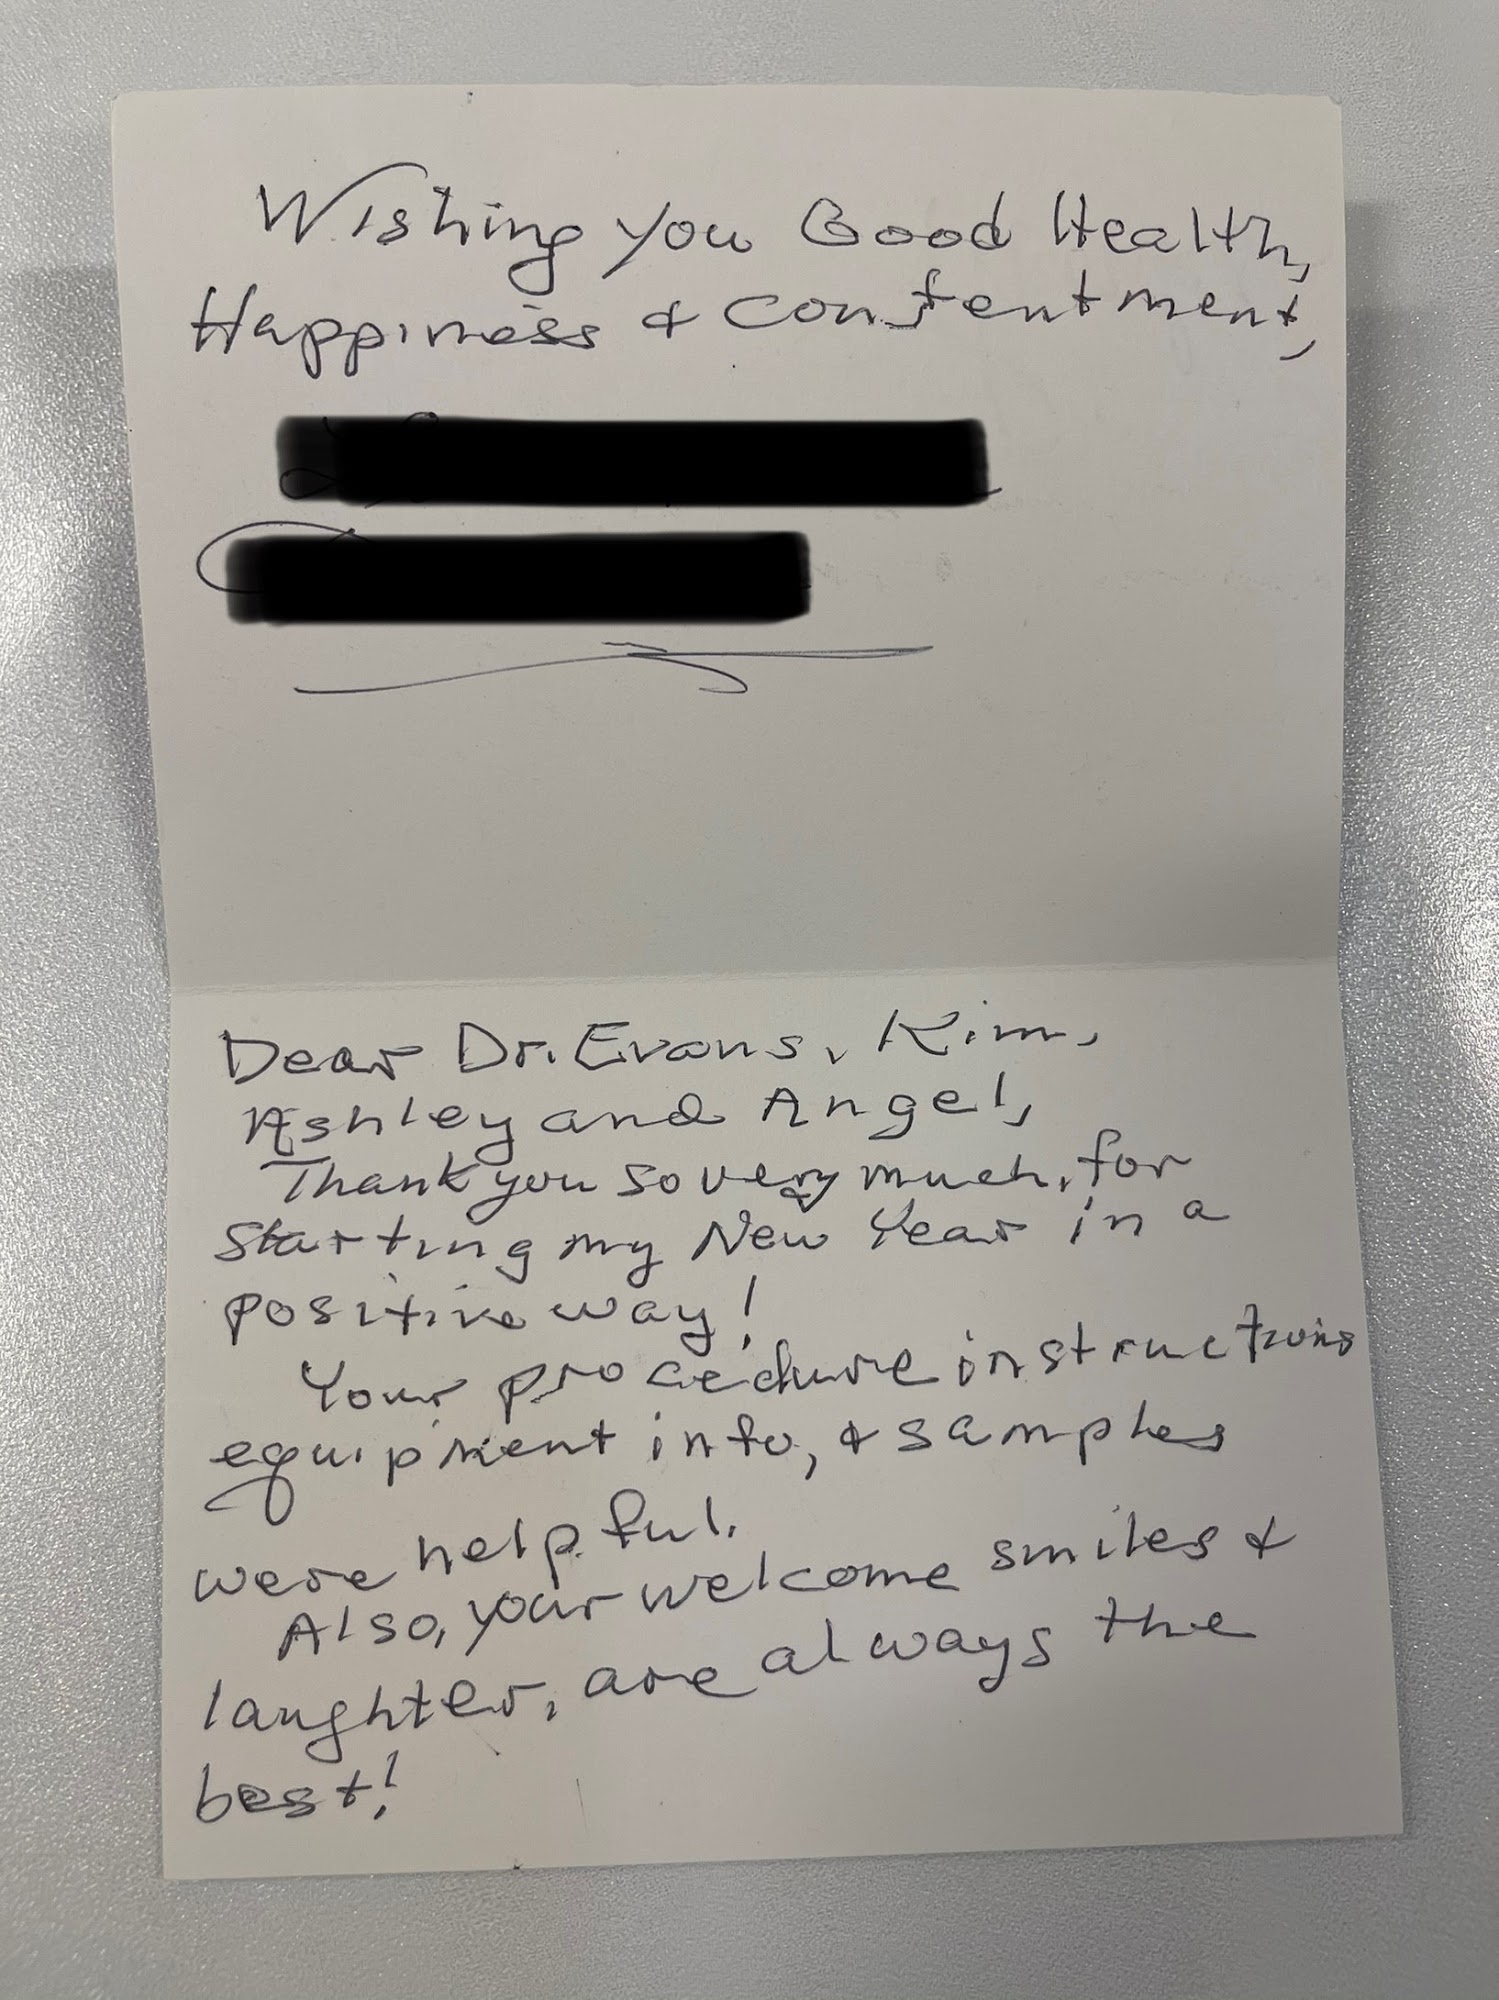 Wishing you Good Health,
Happiness & Contentment,
Dear Dr. Evans, Kim,
Ashley and Angel,
Thank you so very much, for
starting my New Year in a
positive way!
Your procedure instructions
equipment info, & samples
were helpful.
Also, your welcome smiles &
laughter, are always the
best!